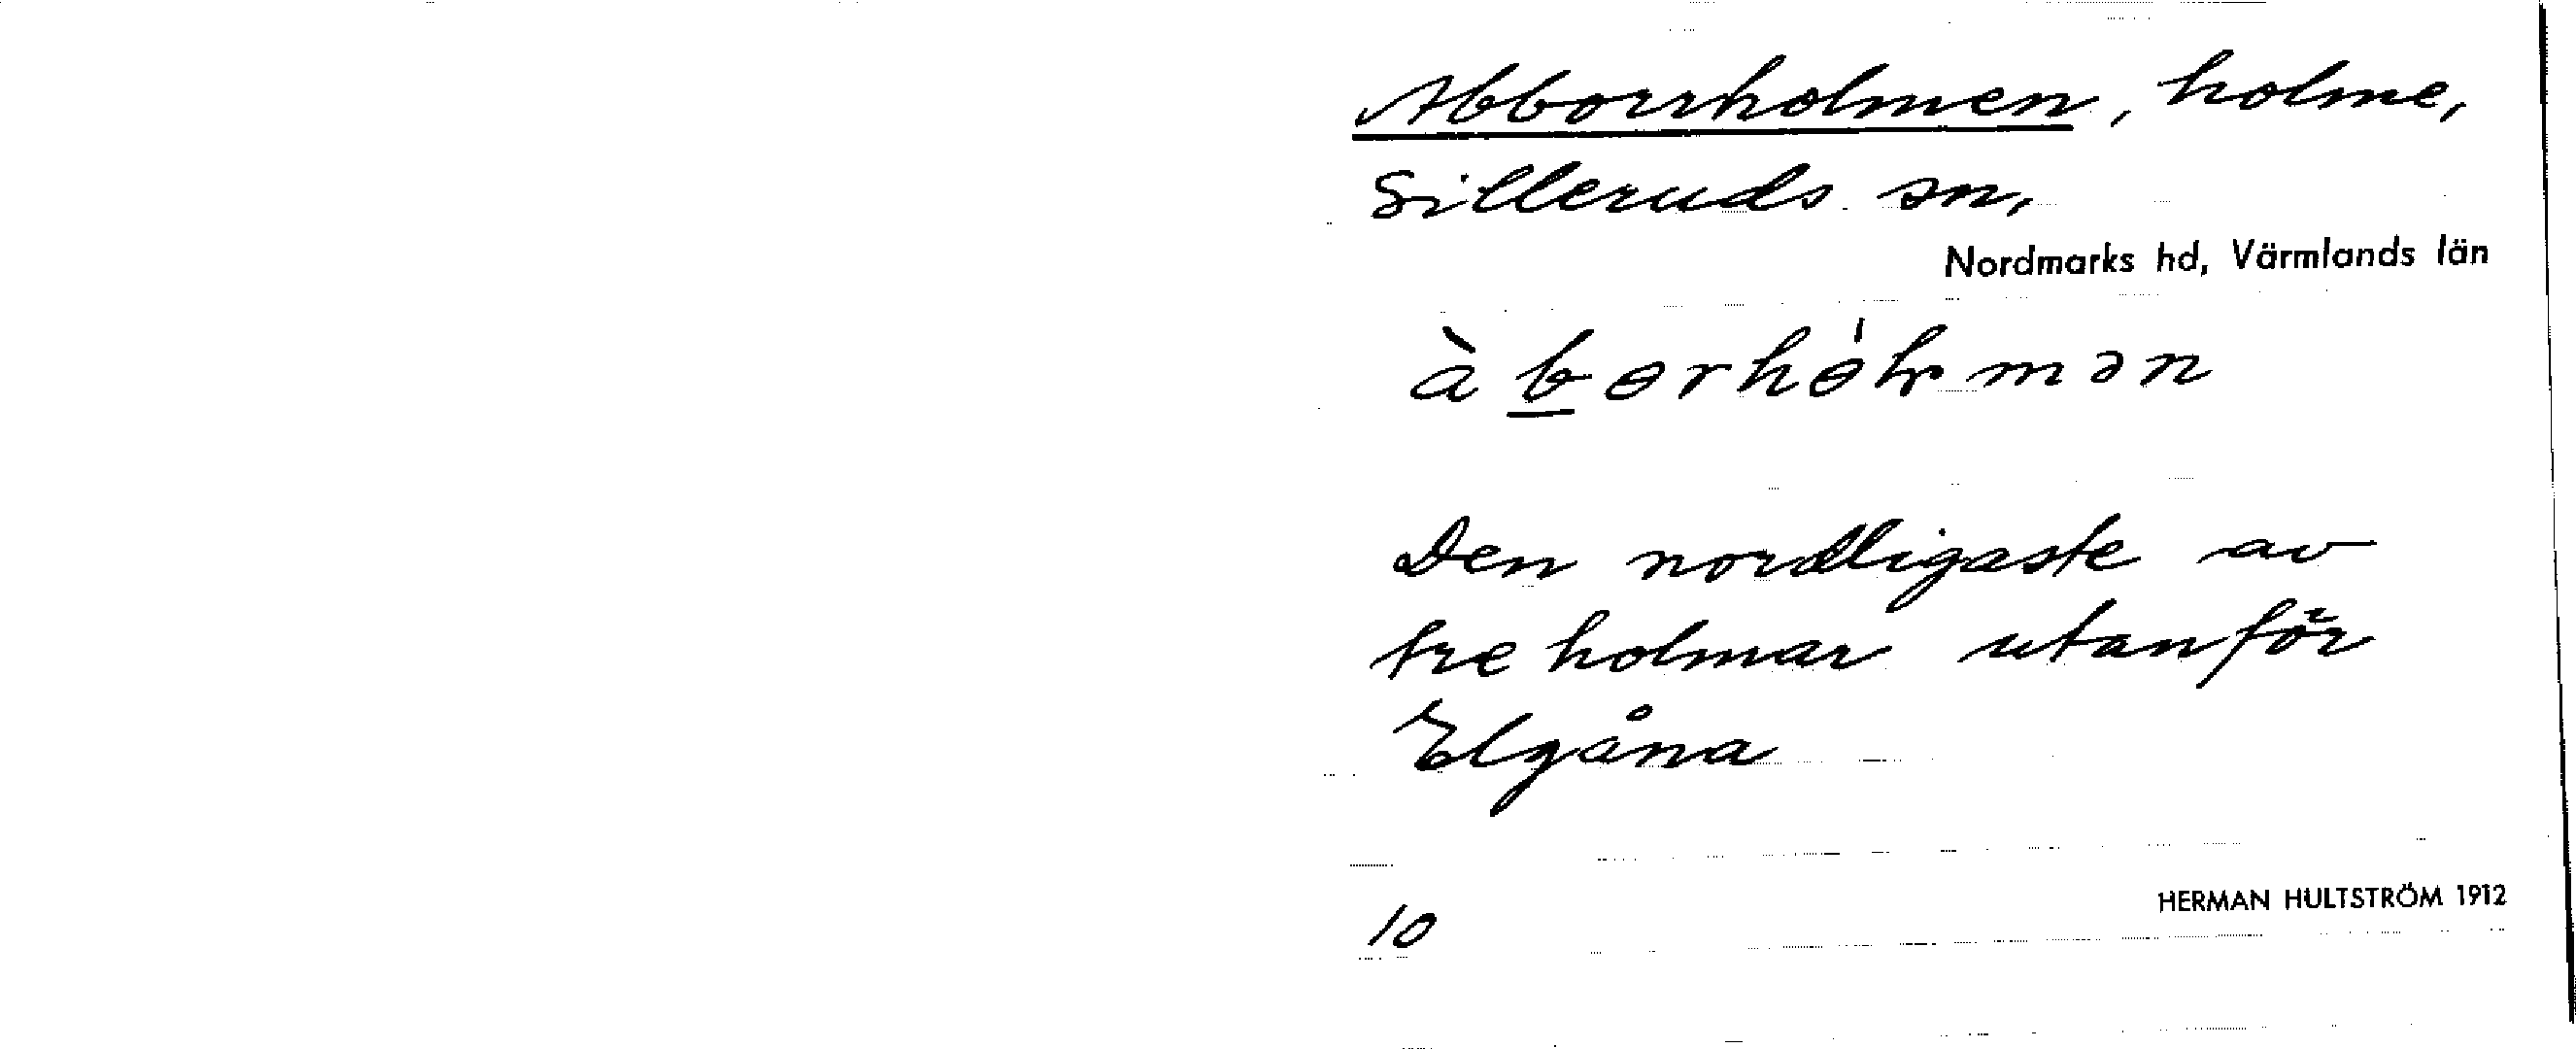 Abborrholmen, holme,
Silleruds sn,
Nordmarks hd, Värmlands län
àbɵrhɵ́ɫmən
Den nordligaste av
tre holmar utanför
Elgåna
HERMAN HULTSTRÖM 1912
10